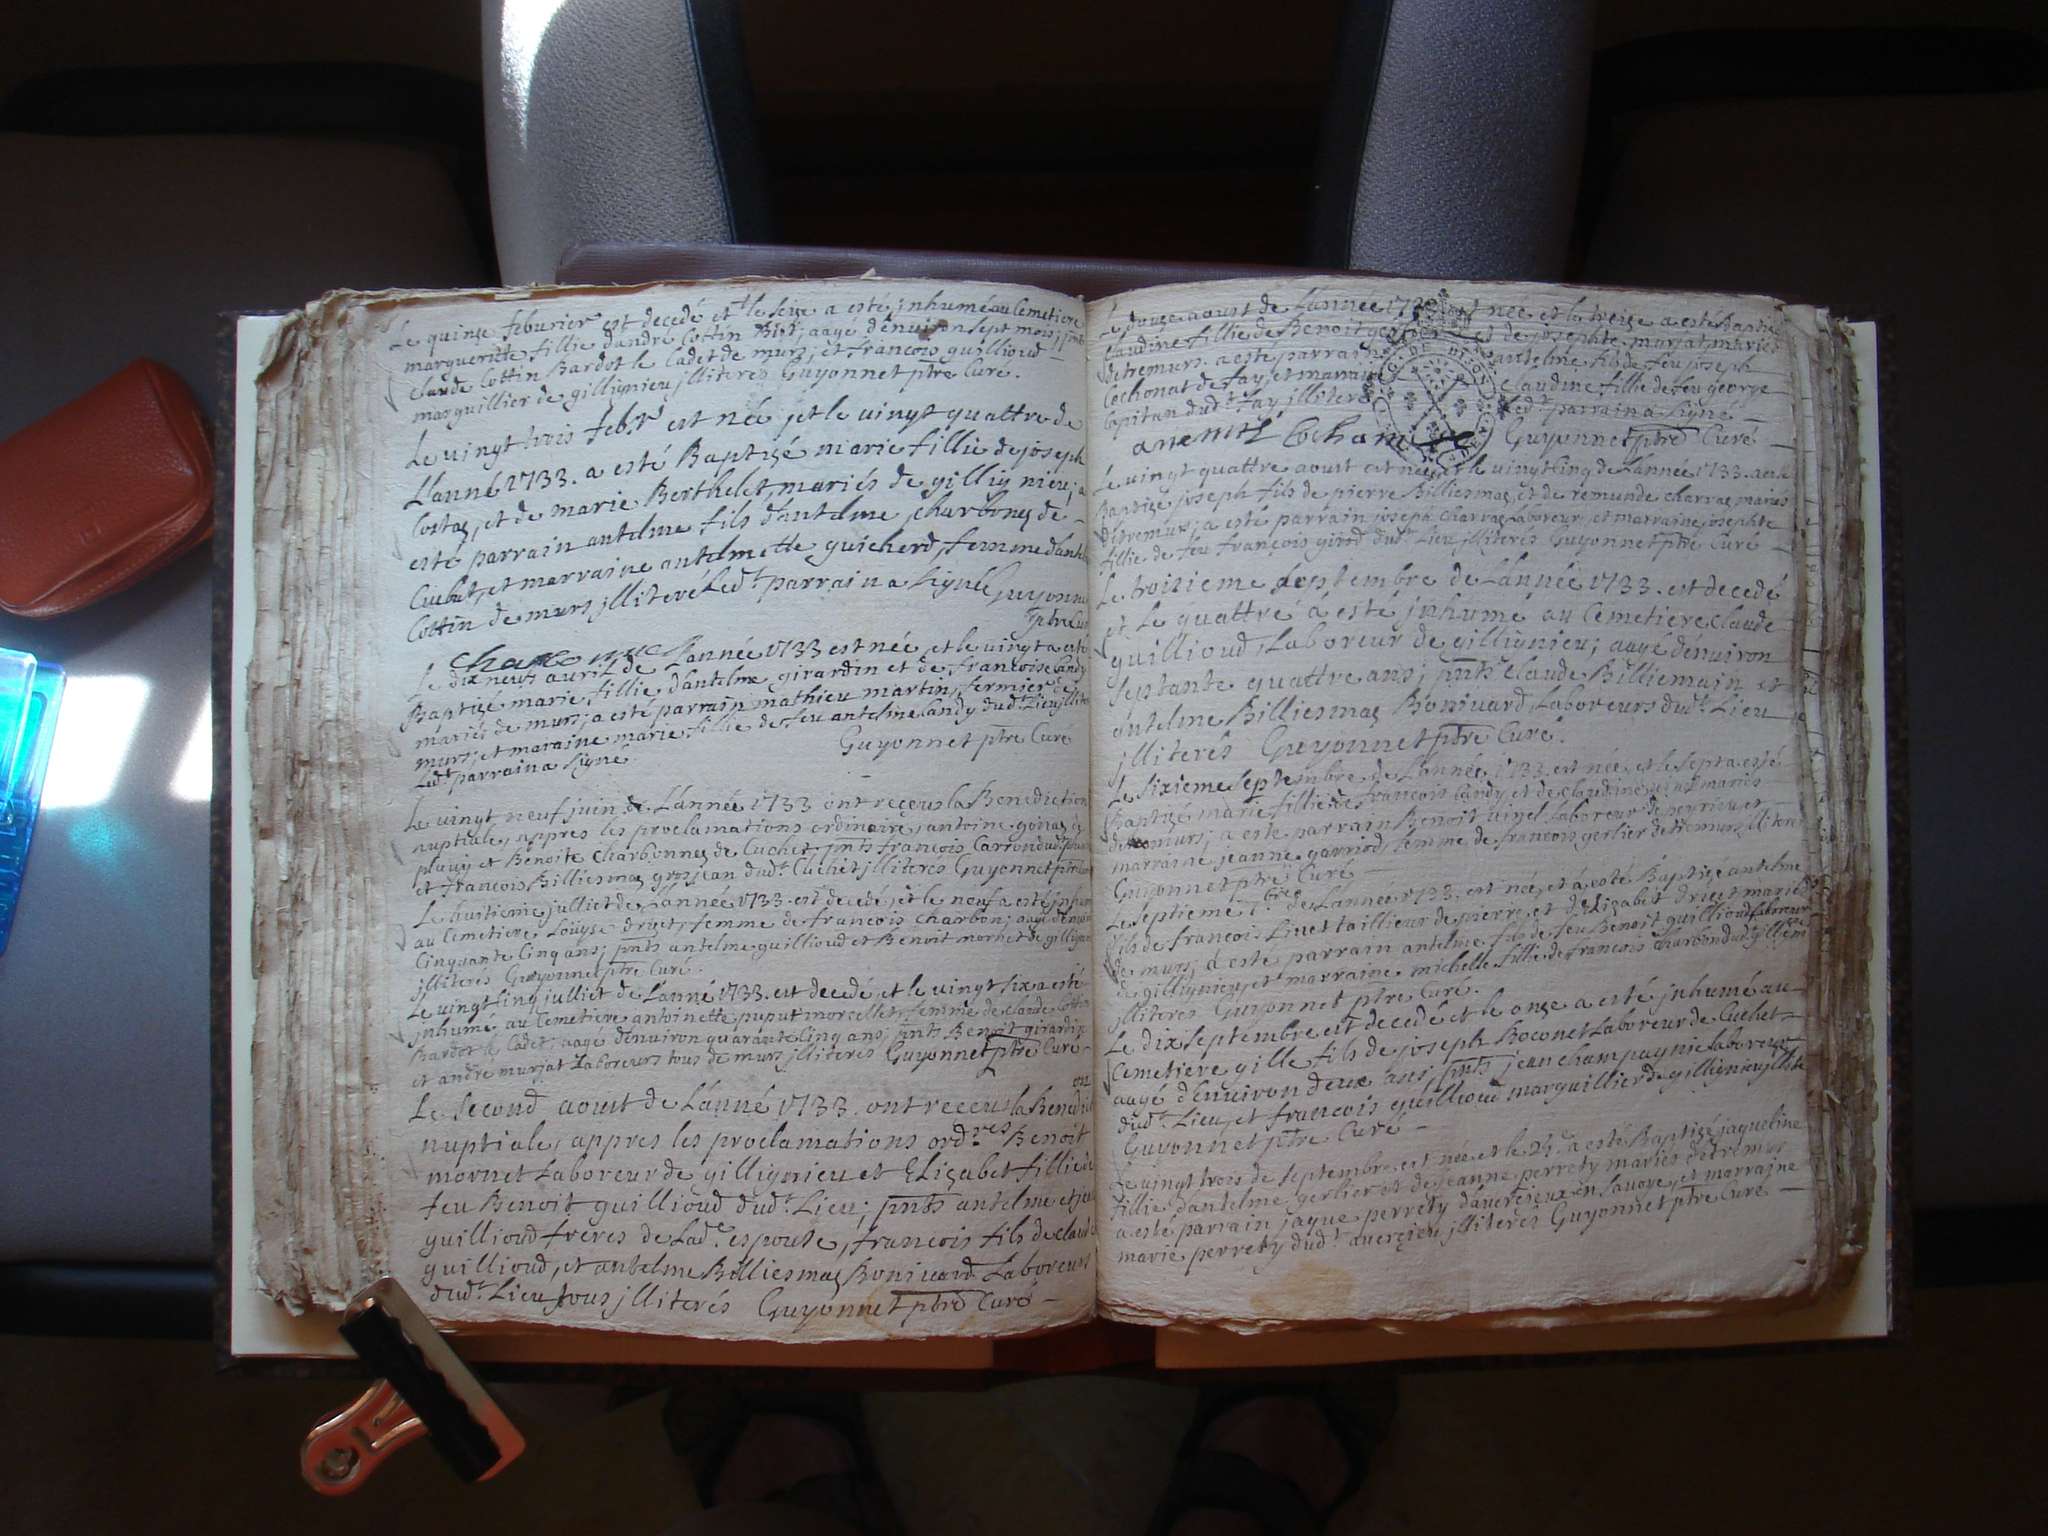 Le quinze feburier est decedé et le seize a esté jnhumé au Cemetiere
margueritte fillie d'andré Cottin Bist; aagé d'enuiron sept mois; pnts
Claude Cottin Bardot le Cadet de murs, et francois guillioud
marguillier de gillignieu jlliterés Guyonnet ptre Curé.
Le uingt trois febr est née jet le uingt quattre de
L'anné 1733. a esté Baptizé marie fillie de joseph
Costaz, et de marie Berthelet, mariés de gillignieu; a
esté parrain antelme fils d'antelme charbonez de
Cuchet, et marraine antelmette guicherd, femme d'anth
Cottin de murs jlliteré Led.t parrain a signé Guyonne
ptre Cur
Charbonne
Le dix neuf auril de L'année 1733 est née, et le uingt a esté
Baptizé marie, fillie d'antelme girardin et de francoise Candy
mariés de murs; a esté parrain mathieu martin, fermier de
murs, et maraine marie fillie de feu antelme Candy dud.t Lieu jllite
Led.t parrain a signe. Guyonnet ptre Curé
Le uingt neuf juin de L'année 1733 ont receus la Benediction
nuptiale, appres les proclamations ordinaires, antoine gonaz de
pluuy et Benoite Charbonnez de Cuchet, pnts francois Carrond dud.
et francois Billiesmaz grosjean dud.t Cuchet jlliterés Guyonnet ptre Curé
Le huitieme julliet de L'année 1733. est decedé, et le neuf a esté jnhumé
au Cemetiere Louyse driuet, femme de francois charbon; aagé d'enuiron
Cinquante Cinq ans; pnts antelme guillioud et Benoit mornet de gilligni
jlliterés Guyonnet ptre Curé.
Le uingt Cinq julliet de L'anné 1733. est decedé, et le uingt six a esté
jnhumé au Cemetiere antoinette puput morcellet, femme de Claude Cottin
Bardot le Cadet; aagé d'enuiron quarante Cinq ans; pnts Benoit girardin
et andré murjat Laboreurs tous de murs jlliterés Guyonnet ptre Curé
Le Second aoust de L'anné 1733. ont receu la Benedicti
on
nuptiale, appres les proclamations ord.res Benoit
mornet Laboreur de gillignieu et Elizabet fillie de
feu Benoit guillioud dud.t Lieu; pnts antelme et jea
guillioud freres de Lad.e espouse, francois fils de claude
guillioud, et antelme Billiesmaz Boniuard Laboreurs
dud.t Lieu tous jlliterés Guyonnet ptre Curé
Le douze aoust de L'année 1733 est née et le treize a esté Baptizé
Claudine fillie de Benoit gerlier et de josephte murjat, mariés
d'etremurs. a esté parrain antelme fils de feu joseph
Cochonat de fay, et marraine Claudine fillie de feu george
Capitan dud.t fay jlliteré Led.t parrain a signe
antelme Cochonat Guyonnet ptre Curé
Le uingt quattre aoust est né, et le uingt Cinq de L'année 1733. a esté
Baptizé joseph fils de pierre Billiesmaz et de remunde charraz mariés
d'etremurs; a esté parrain joseph charraz Laboreur, et marraine josephte
fillie de feu françois girod dud.t Lieu jlliterés Guyonnet ptre Curé
Le troisieme septembre de L'année 1733. est decedé
et Le quattre a esté jnhumé au Cemetiere Claude
guillioud, Laboreur de gillignieu; aagé d'enuiron
septante quattre ans; pnts Claude Billiemajn et
antelme Billiesmaz Boniuard, Laboreurs dud.t Lieu
jlliterés Guyonnet ptre Curé.
Le sixieme septembre de L'année 1733. est née, et le sept a esté
Baptizé marie fillie de francois Candy et de claudine mariés
de murs; a esté parrain Benoit uinel Laboreur de peyrieu, et
marraine jeanne garniod, femme de francois gerlier d'etremurs jlliteré
Guyonnet ptre Curé
Le septieme 7.bre de L'année 1733. est né, et a esté Baptizé antelme
fils de francois Liuet taillieur de pierre, et d'Elizabet driuet mariés
de murs; a esté parrain antelme fils de feu Benoit guillioud laboreur
de gillignieu, et marraine michelle fillie de francois charbon dud.t gillieni
jlliterés Guyonnet ptre Curé.
Le dix septembre est decedé et le onze a esté jnhumé au
Cemetiere gille fils de joseph Boconet Laboreur de Cuchet
aagé d'enuiron deux ans; pnts jean champagnie laboreur
dud.t Lieu, et francois guillioud marguillier de gillignieu jllité
Guyonnet ptre Curé
Le uingt trois de septembre est née et le 24. a esté Baptizé jaqueline
fillie d'antelme gerlier et de jeanne perrety mariés d'etremurs
a esté parrain jaque perrety d'auerzieux en sauoye, et marraine
marie perrety dud.t auerzieu jlliterés Guyonnet ptre Curé